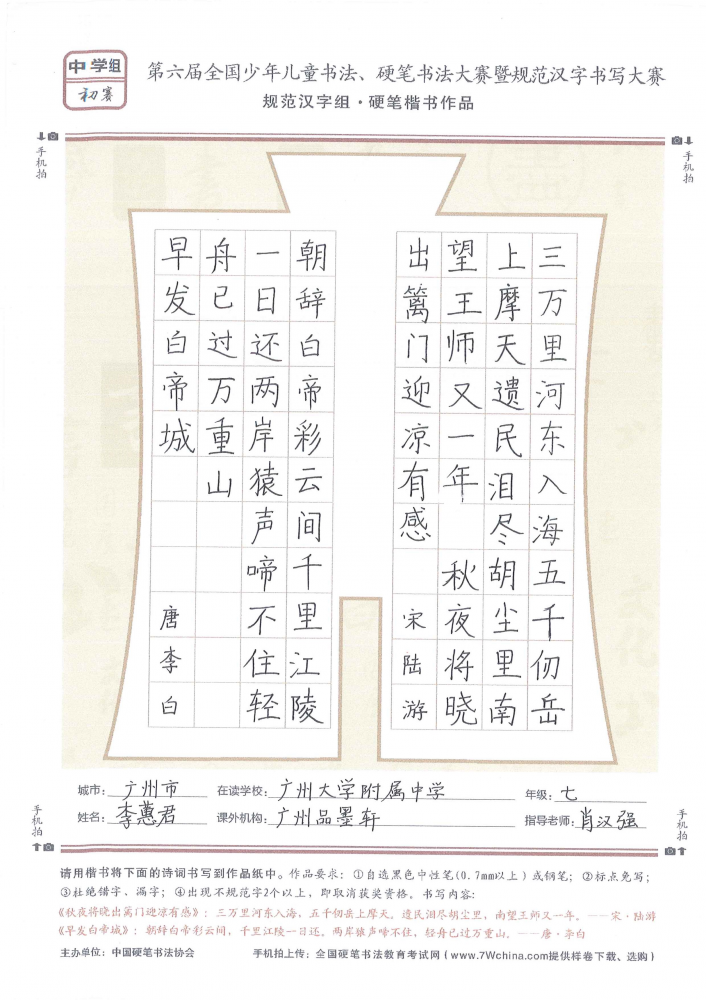 中学组
初赛
第六届全国少年儿童书法、硬笔书法大赛暨规范汉字书写大赛
规范汉字组·硬笔楷书作品
手机拍
手机拍
三万里河东入海五千仞岳
上摩天遗民泪尽胡尘里南
望王师又一年 秋夜将晓
出篱门迎凉有感 宋陆游
朝辞白帝彩云间千里江陵
一日还两岸猿声啼不住轻
舟已过万重山
早发白帝城 唐李白
城市：广州市 在读学校：广州大学附属中学 年级：七
姓名：李蕙君 课外机构：广州品墨轩 指导老师：肖汉强
手机拍
手机拍
请用楷书将下面的诗词书写到作品纸中。作品要求：①自选黑色中性笔(0.7mm以上)或钢笔；②标点免写；
③杜绝错字、漏字；④出现不规范字2个以上，即取消获奖资格。书写内容：
《秋夜将晓出篱门迎凉有感》：三万里河东入海，五千仞岳上摩天。遗民泪尽胡尘里，南望王师又一年。——宋·陆游
《早发白帝城》：朝辞白帝彩云间，千里江陵一日还。两岸猿声啼不住，轻舟已过万重山。——唐·李白
主办单位：中国硬笔书法协会 手机拍上传：全国硬笔书法教育考试网（www.7Wchina.com提供样卷下载、选购）